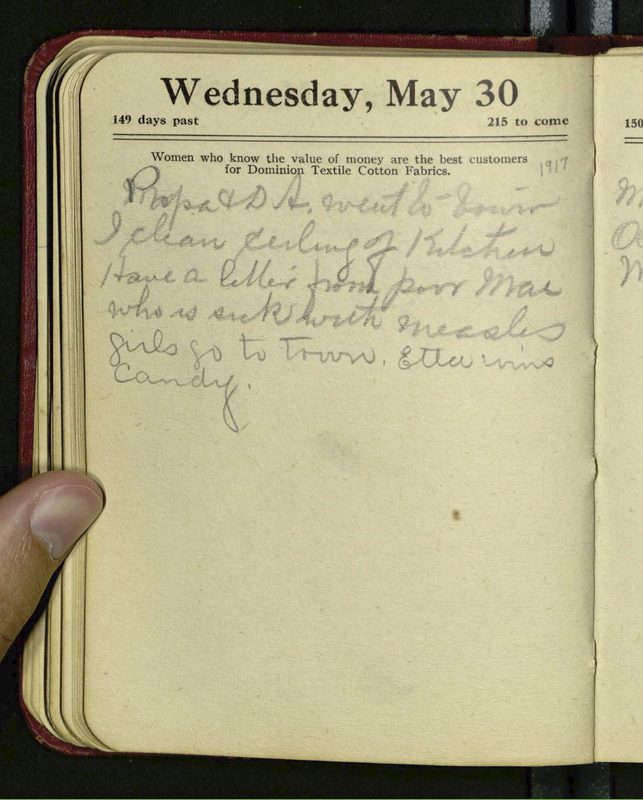 Wednesday, May 30
149 days past 215 to come
Women who know the value of money are the best customers
for Dominion Textile Cotton Fabrics.
1917
Papa & D A. went to Town
I clean ceiling of Kitchen
Have a letter from poor Mae
who is sick with measles
girls go to Town. Etta wins
Candy.
150